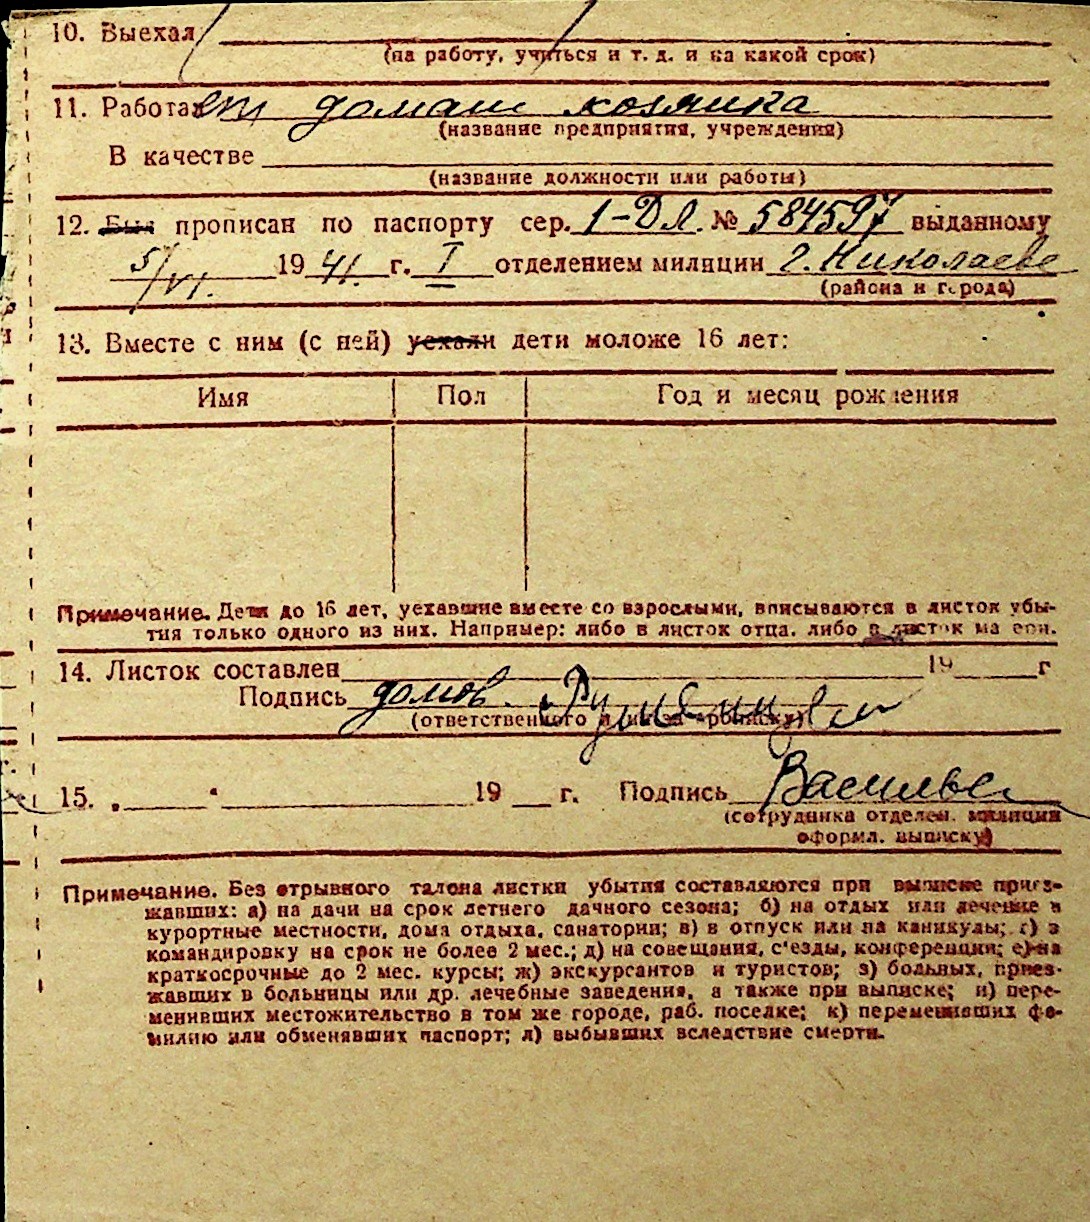 10. Выехал
(на работу, учиться и т. д. и на какой срок)
11. Работает домаш хозяйка
(название предприятия, учреждения)
В качестве
(название должности или работы)
12. Был прописан по паспорту сер. 1-ДЛ. № 584597 выданному
5/VI. 19 41. г. I отделением милиции г. Николаеве
(района и города)
13. Вместе с ним (с ней) уехали дети моложе 16 лет:
Имя Пол Год и месяц рождения
Примечание. Дети до 16 лет, уехавшие вместе со взрослыми, вписываются в листок убы-
тия только одного из них. Например: либо в листок отца, либо в листок матери.
14. Листок составлен 19 г
Подпись домов.
(ответственного лица за прописку)
15. „ “ 19 г. Подпись Васильев
(сотрудника отделен. милиции
оформл. выписку)
Примечание. Без отрывного талона листки убытия составляются при выписке приез-
жавших: а) на дачи на срок летнего дачного сезона; б) на отдых или лечение в
курортные местности, дома отдыха, санатории; в) в отпуск или на каникулы; г) в
командировку на срок не более 2 мес.; д) на совещания, с'езды, конференции; е) на
краткосрочные до 2 мес. курсы; ж) экскурсантов и туристов; з) больных, приез-
жавших в больницы или др. лечебные заведения, а также при выписке; и) пере-
менивших местожительство в том же городе, раб. поселке; к) переменивших фа-
милию или обменявших паспорт; л) выбывших вследствие смерти.